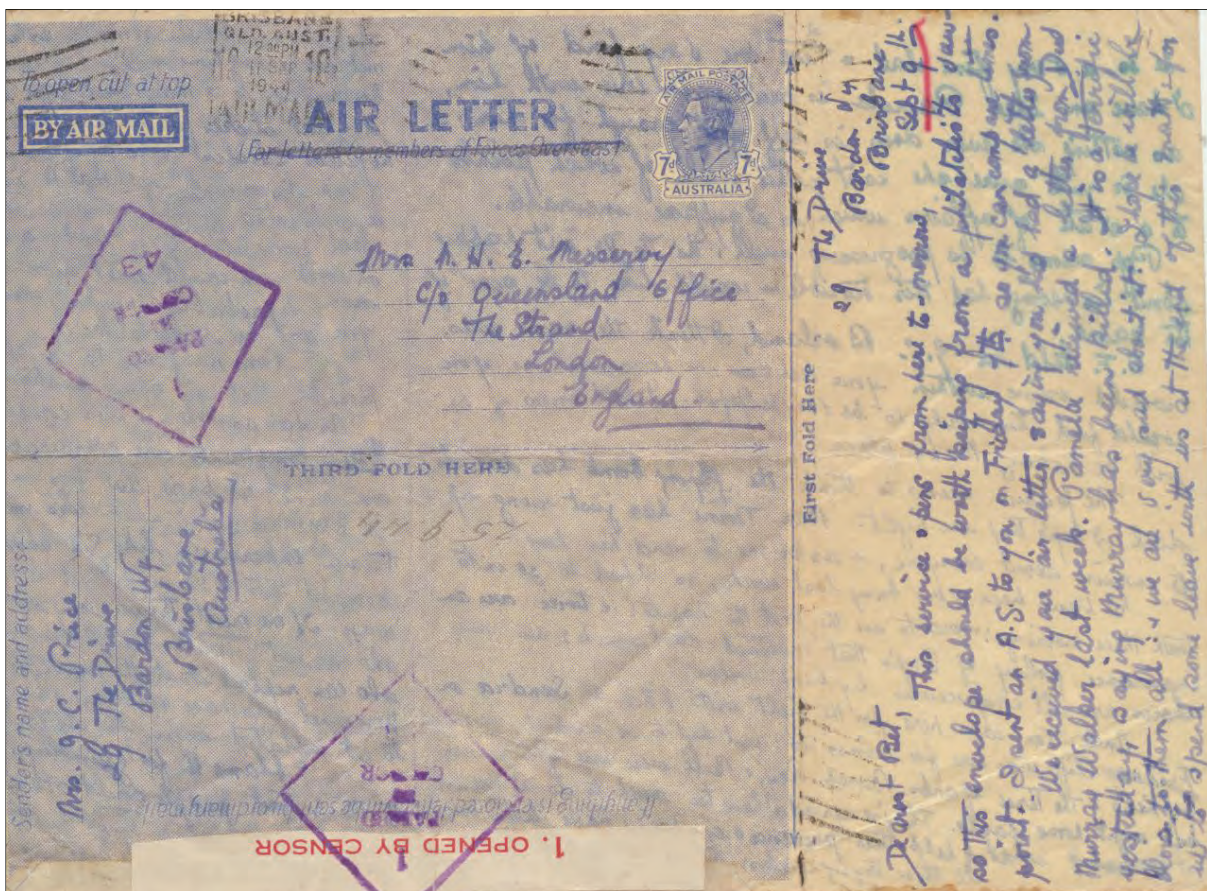 BRISBANE
QLD. AUST.
12 30PM
11 SEP
1944
AIR MAIL
To open cut at top
BY AIR MAIL
AIR LETTER
(For letters to members of Forces Overseas)
AIR MAIL POSTAGE
7d 7d
AUSTRALIA
Mrs N. H. E. Messervy
C/o Queensland Office
The Strand
London
England
1
PASSED
BY
CENSOR
A3
THIRD FOLD HERE
25 9 44
Sender's name and address:
Mrs. J. C. Price
29 The Drive
Bardon W4
Brisbane
Australia
If anything is enclosed this will be sent by ordinary mail
1
PASSED
BY
CENSOR
1. OPENED BY CENSOR
First Fold Here
29 The Drive
Bardon W4
Brisbane
Sept 9th.
Dearest Pet, This service opens from here to-morrow,
so this envelope should be worth keeping from a philatelists view-
point. I sent an A.G. to you on Friday 7th so you can compare times.
We received your air letter saying you'd had a letter from
Murray Walker last week. Pamela received a letter from Des
yesterday saying Murray has been killed. It is a horrific
blow to them all & we are very sad about it. I hope he will be
to spend some leave with us at the end of this month - for